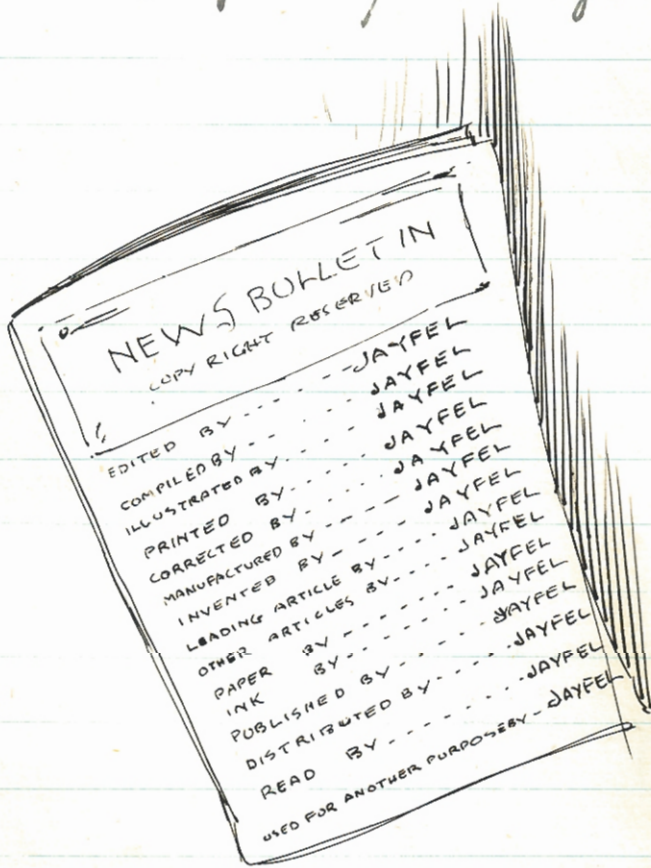 NEWS BULLETIN
COPY RIGHT RESERVED
EDITED BY - - - - - - JAYFEL
COMPILED BY - - - - JAYFEL
ILLUSTRATED BY - - - - JAYFEL
PRINTED BY - - - - - JAYFEL
CORRECTED BY - - - - JAYFEL
MANUFACTURED BY - - - - JAYFEL
INVENTED BY - - - - JAYFEL
LEADING ARTICLE BY - - - - JAYFEL
OTHER ARTICLES BY - - - - JAYFEL
PAPER BY - - - - - - JAYFEL
INK BY - - - - - - JAYFEL
PUBLISHED BY - - - - - JAYFEL
DISTRIBUTED BY - - - - - JAYFEL
READ BY - - - - - - - JAYFEL
USED FOR ANOTHER PURPOSE BY - JAYFEL